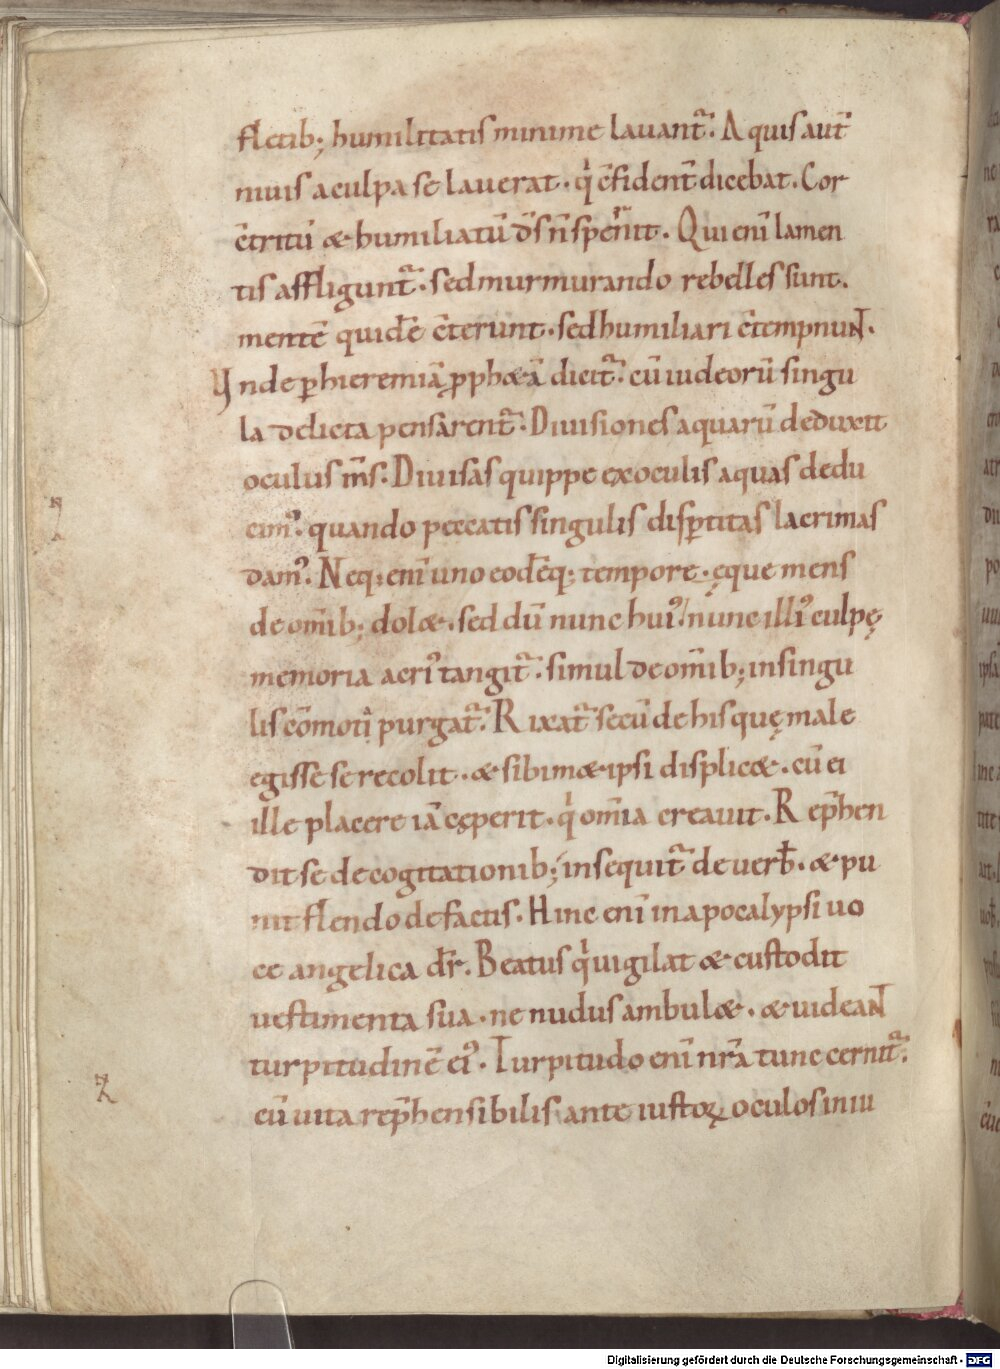 fletib; humilitatis minime lavant᷑. A quis aut̄
niuis a culpa se lauerat. qͥ c̄fident̄ dicebat. Cor
c̄tritū & humiliatū ds̄ n̄ spernit. Qui enī lamen
tis affligunt᷑. sed murmurando rebelles sunt.
mentē quidē c̄terunt. sed humiliari c̄tempnuNT.
Vnde ꝑ hieremiā ꝓph&ā dicit᷑. cū iudeorū singu
la delicta pensarent᷑. Diuisiones aquarū deduxit
oculus ms̄. Diuisas quippe ex oculis aquas dedu
cimꝰ. quando peccatis singulis disꝑtitas lacrimas
damꝰ. Neq; enī uno eodēq; tempore. ęque mens
de om̄ib; dol&. sed dū nunc huiꝰ / nunc illiꝰ culpę
memoria acriꝰ tangit᷑. simul de om̄ib; in singu
lis cōmota purgat᷑. Rixat᷑ secū de his quę male
egisse se recolit. & sibim& ipsi displic&. cū ei
ille placere iā cęperit. qͥ om̄ia creauit. Rep̄hen
dit se de cogitationib; insequit᷑ de verb̄. & pu
nit flendo de factis. Hinc enī in apocalypsi uo
ce angelica dr̄. Beatus qͥ uigilat & custodit
uestimenta sua. ne nudus ambul&. & uideaNT
turpitudinē eiꝰ. Turpitudo enī nr̄a tunc cernit᷑.
cū uita rep̄hensibilis ante iustoꝝ oculos in iu
Digitalisierung gefördert durch die Deutsche Forschungsgemeinschaft - DFG